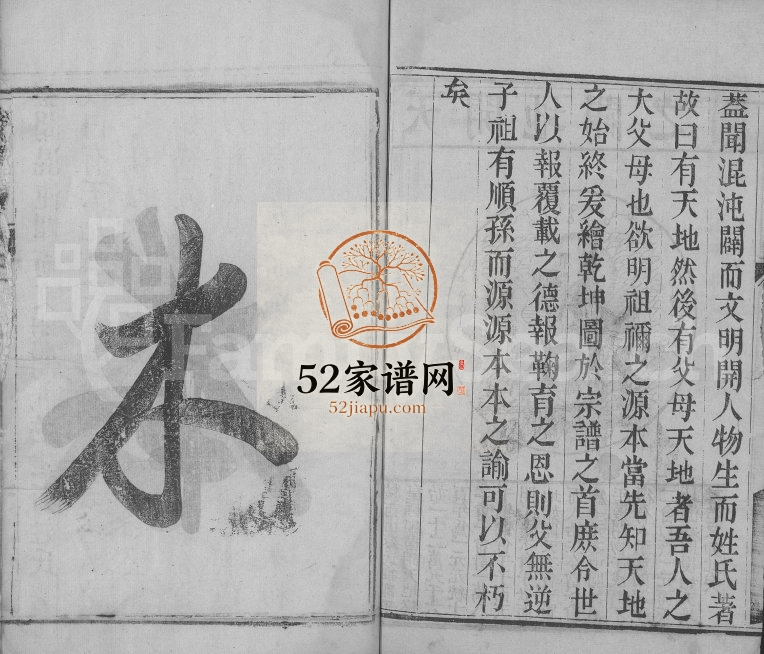 蓋聞混沌闢而文明開人物生而姓氏著
故曰有天地然後有父母天地者吾人之
大父母也欲明祖禰之源本當先知天地
之始終爰繪乾坤圖於宗譜之首庶令世
人以報覆載之德報鞠育之恩則父無逆
子祖有順孫而源源本本之諭可以不朽
矣
本
52家谱网
52jiapu.com